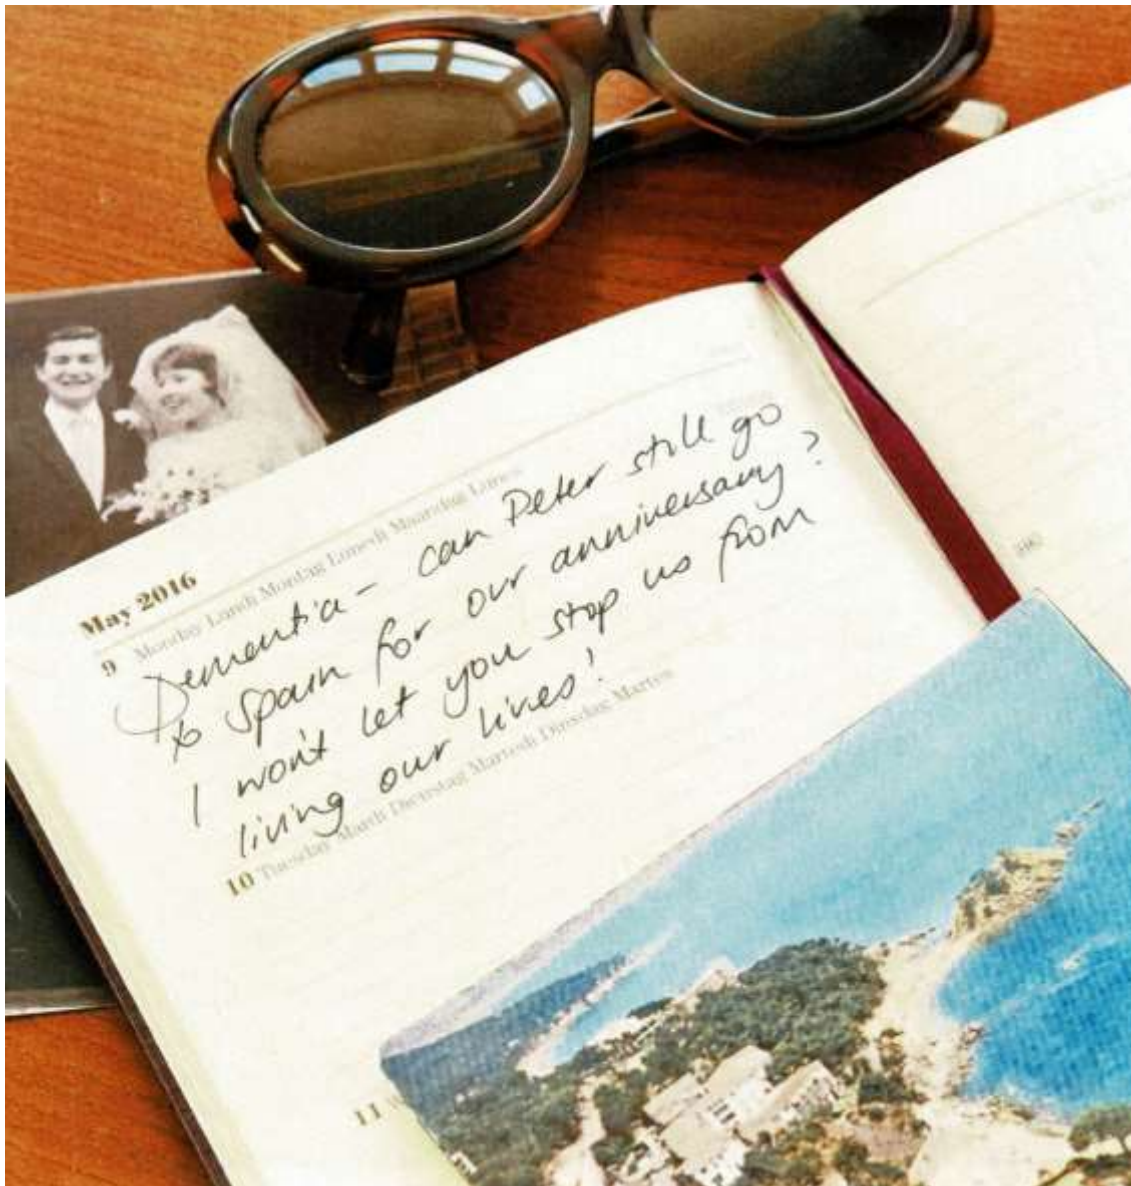 May 2016
9 Monday Lundi Montag Lunedi Maandag Lunes
Dementia - can Peter still go
to Spain for our anniversary?
I won't let you stop us from
living our lives!
10 Tuesday Mardi Dienstag Martedi Dinsdag Martes
11